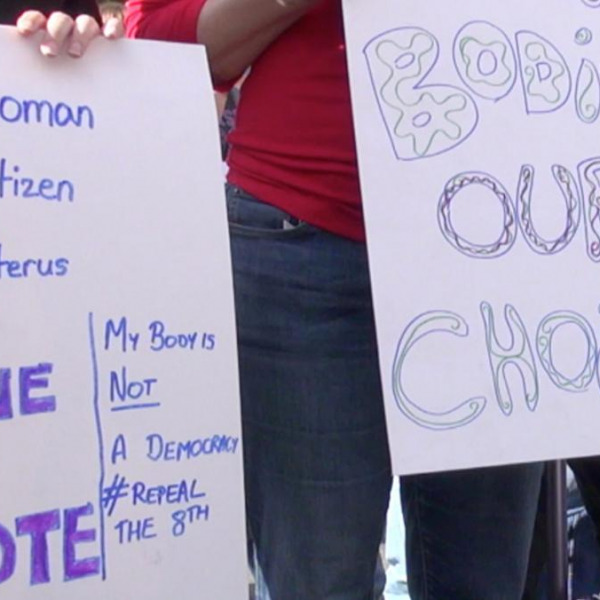 oman
tizen
terus
NE
OTE
MY BODY IS
NOT
A DEMOCRACY
#REPEAL
THE 8TH
BODi
OUR
CHO